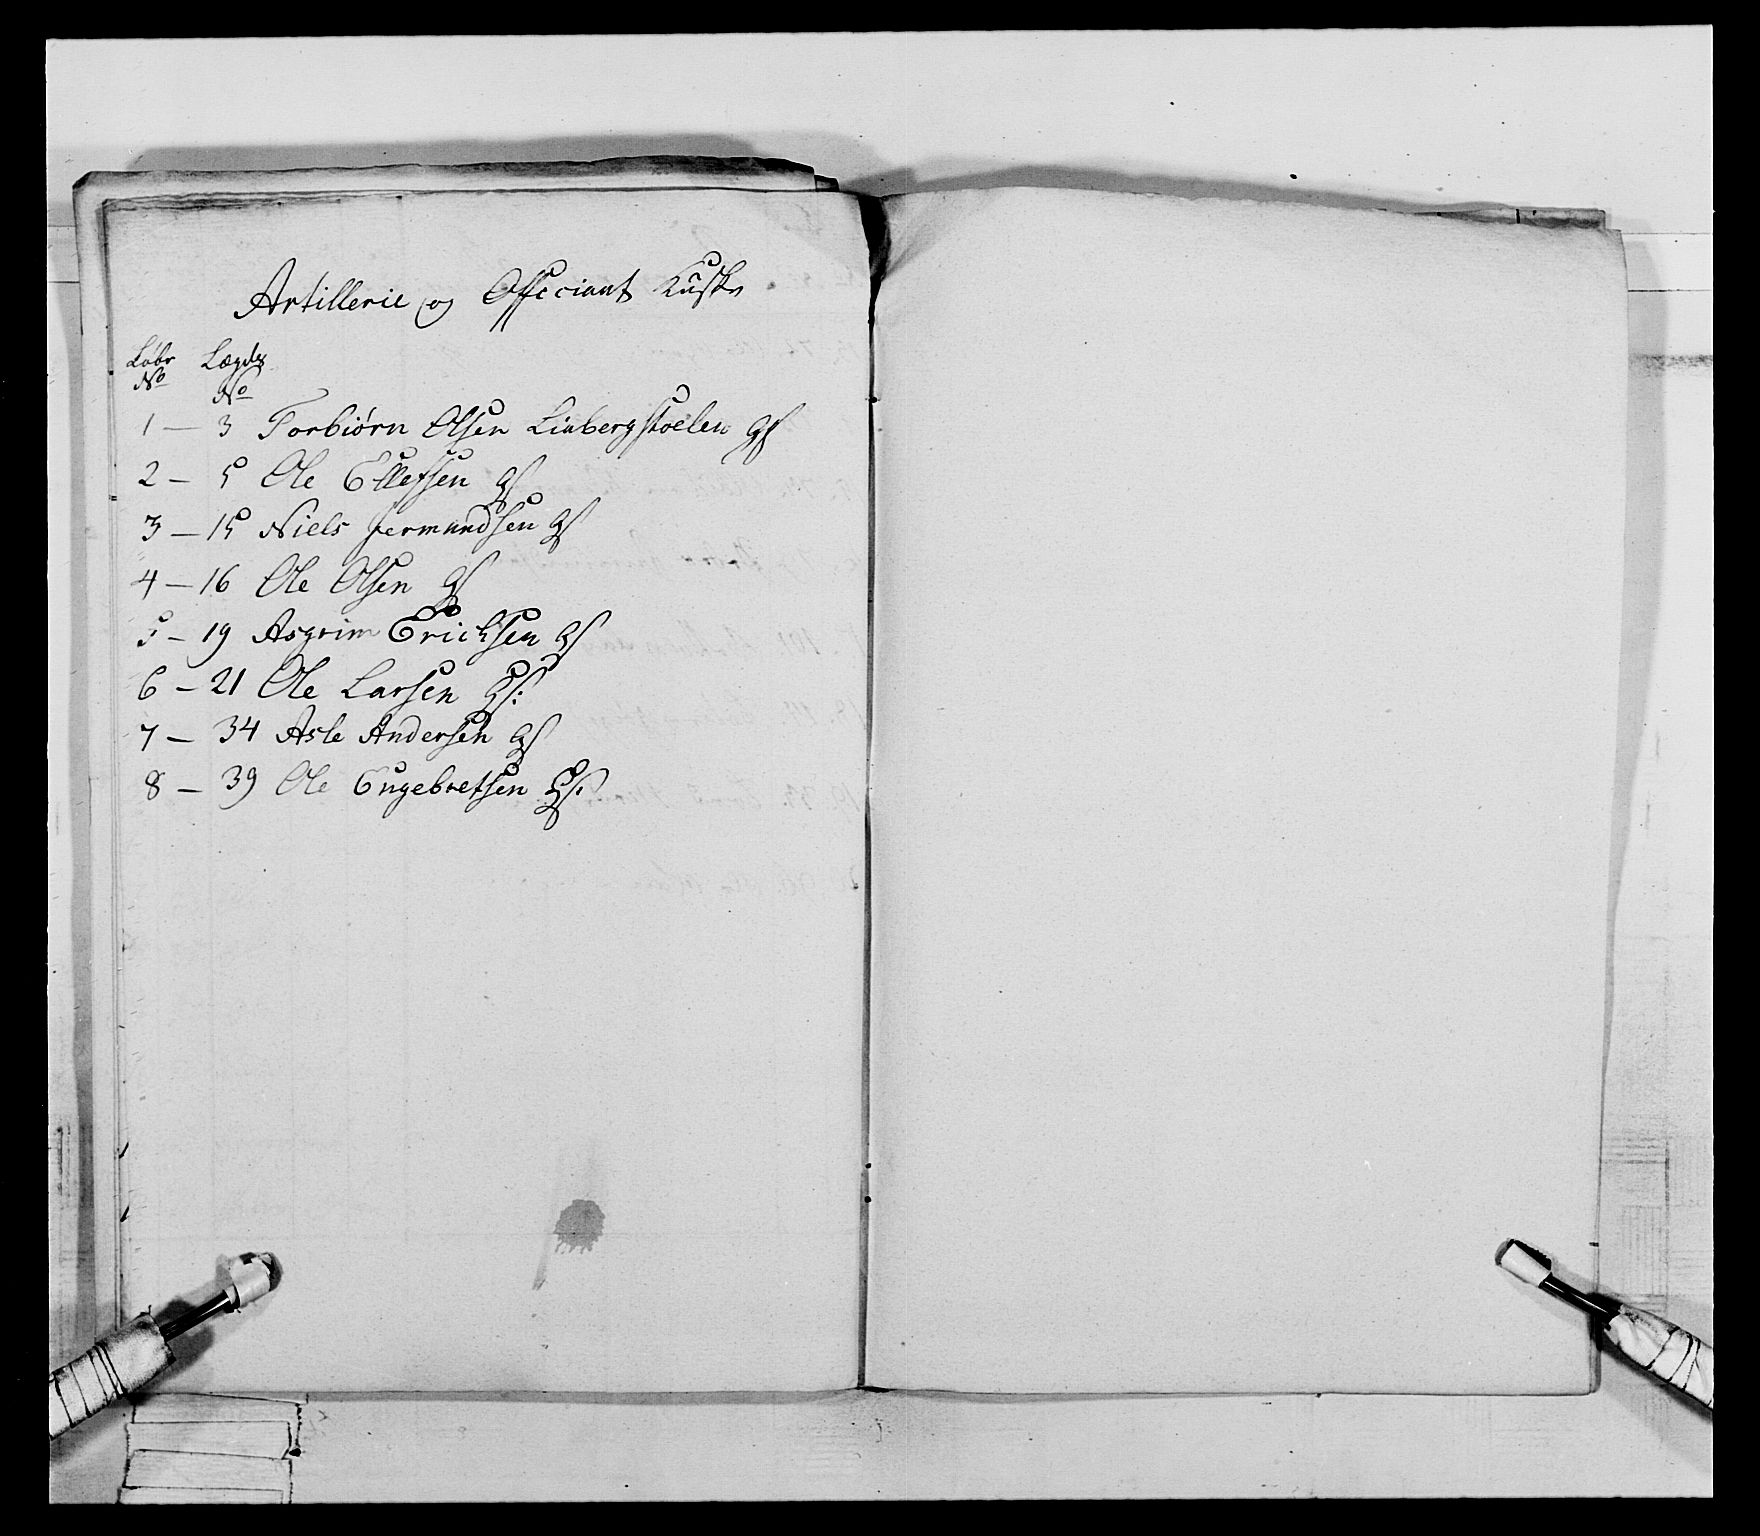 Artillerie og Officiant Kuske
Løbr Lægds
No No
1 — 3 Torbiørn Olsen Linbergstoelen
2 — 5 Ole Ellefsen
3 — 15 Niels Germundsen
4 — 16 Ole Olsen
5 — 19 Asgrim Erichsen
6 — 21 Ole Larsen
7 — 34 Asle Andersen
8 — 39 Ole Engebretsen